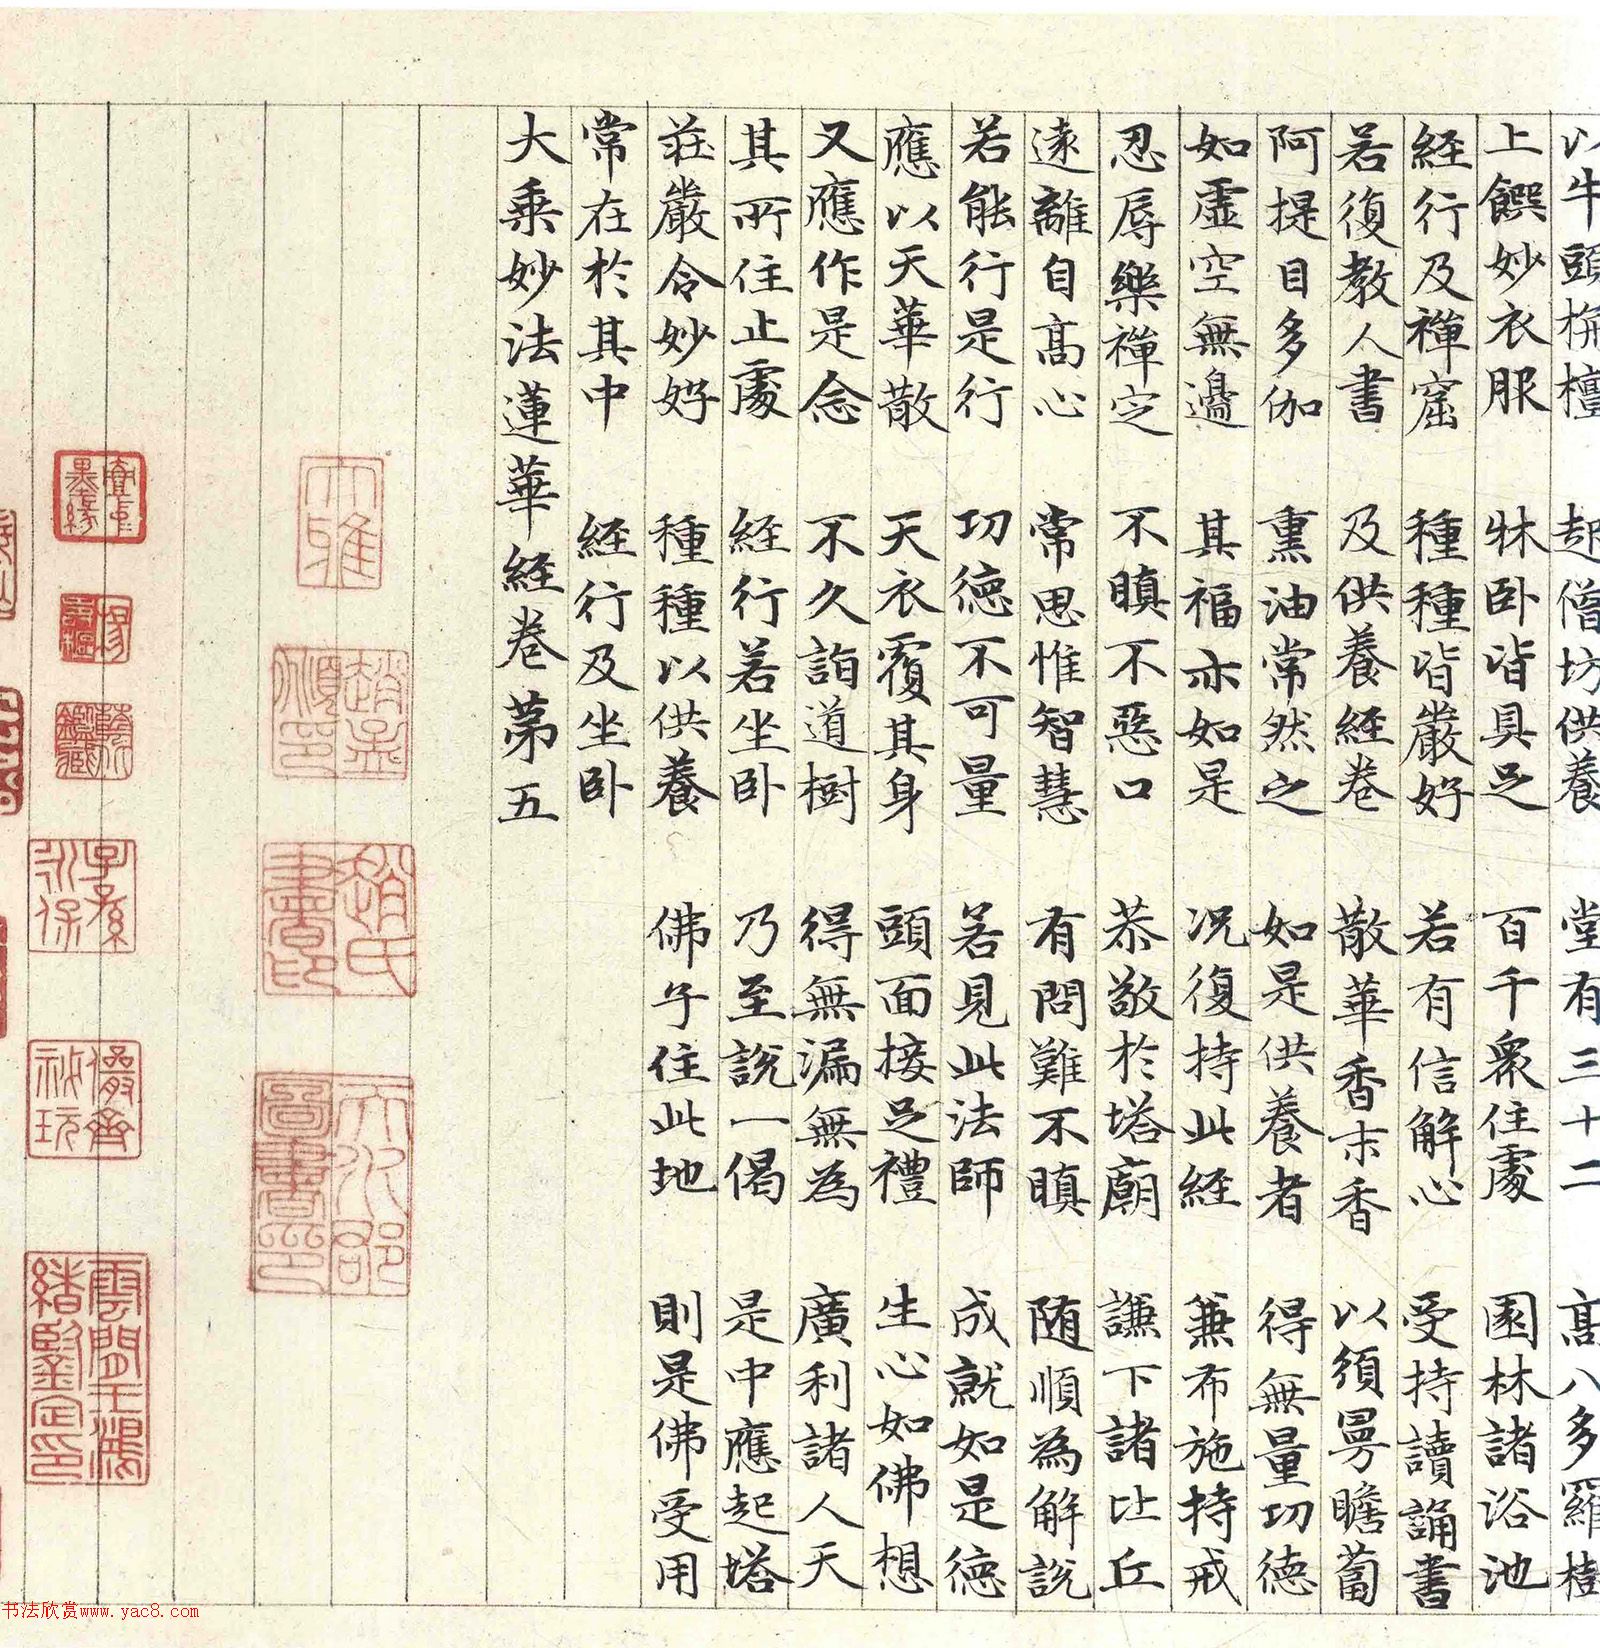 以牛頭栴檀 起僧坊供養 堂有三十二 高八多羅樹
上饌妙衣服 牀卧皆具足 百千衆住處 園林諸浴池
経行及禪窟 種種皆嚴好 若有信解心 受持讀誦書
若復教人書 及供養経卷 散華香末香 以須曼瞻蔔
阿提目多伽 熏油常然之 如是供養者 得無量功德
如虛空無邊 其福亦如是 况復持此経 兼布施持戒
忍辱樂禪定 不瞋不惡口 恭敬於塔廟 謙下諸比丘
遠離自髙心 常思惟智慧 有問難不瞋 随順為解説
若能行是行 功德不可量 若見此法師 成就如是德
應以天華散 天衣覆其身 頭面接足禮 生心如佛想
又應作是念 不久詣道樹 得無漏無為 廣利諸人天
其所住止處 経行若坐卧 乃至說一偈 是中應起塔
莊嚴令妙好 種種以供養 佛子住此地 則是佛受用
常在於其中 経行及坐卧
大乗妙法蓮華経卷第五
大雅
趙孟順印
趙氏書印
天水郡啚書印
宜子墨緣
鑑藏
子孫永保
儼齋祕玩
雲間王鴻緒鑒定印
书法欣赏www.yac8.com